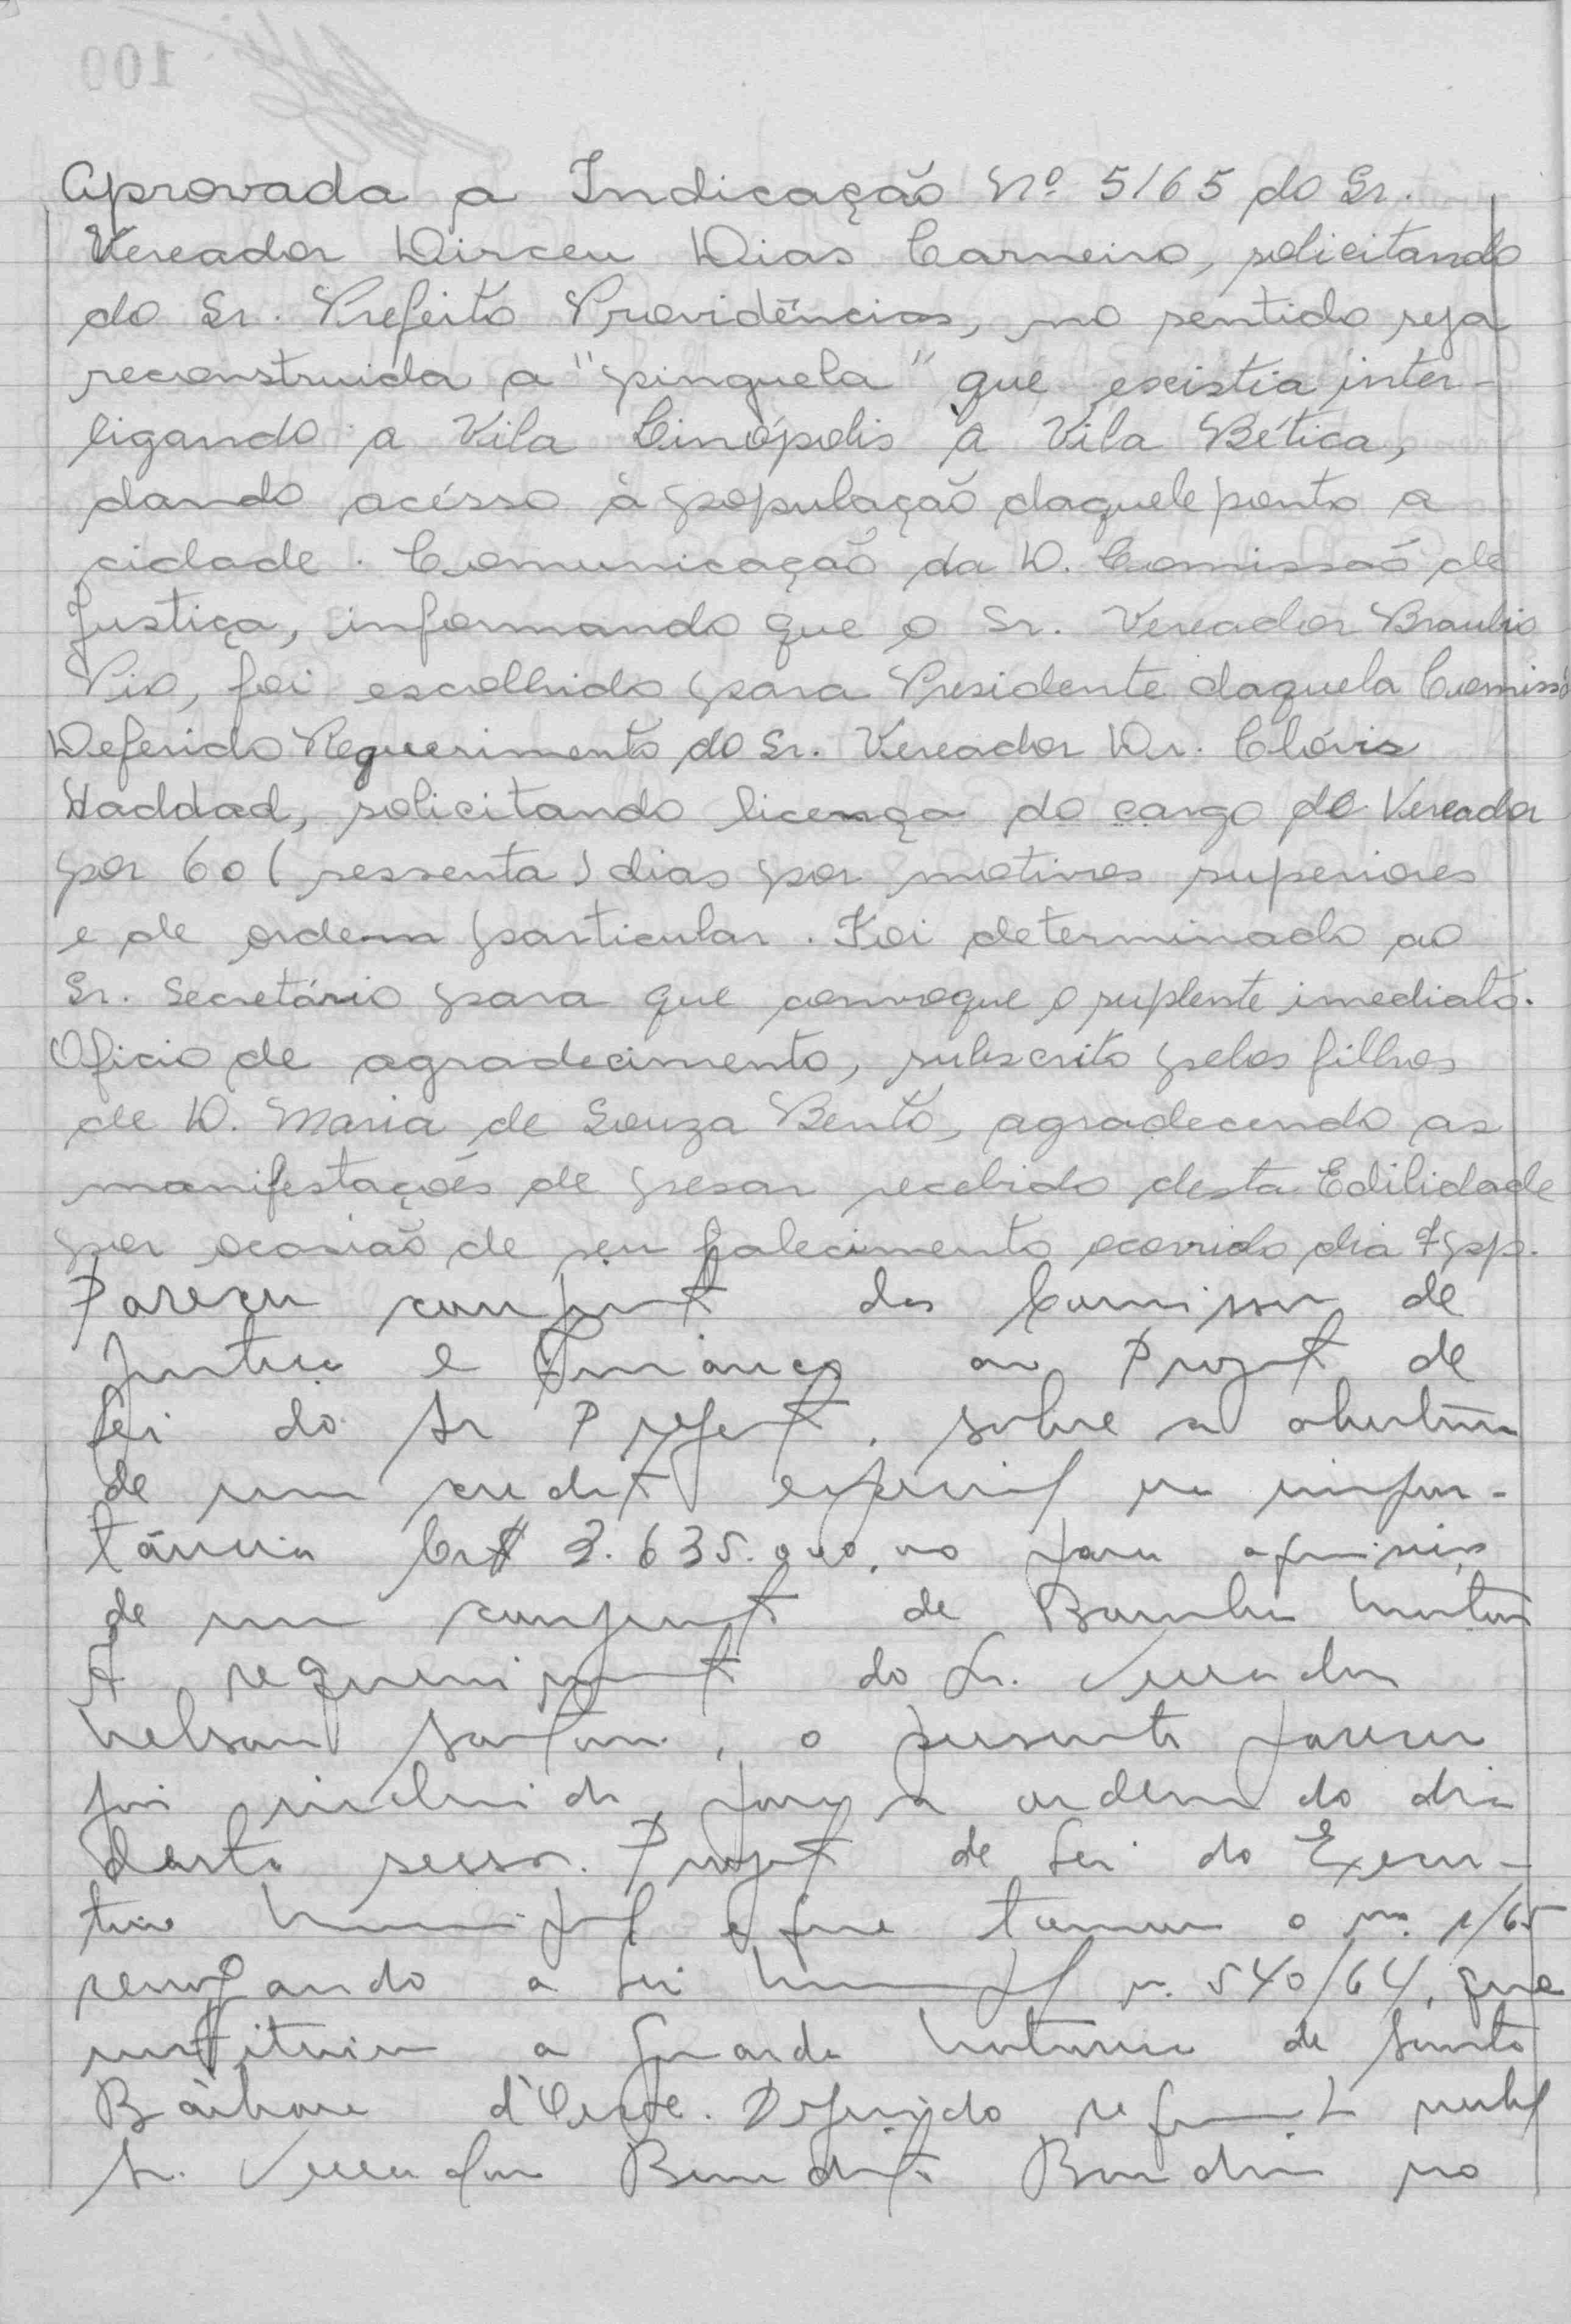 100
Aprovada a Indicação Nº 5/65 do Sr.
Vereador Dirceu Dias Carneiro, solicitando
do Sr. Prefeito Providências, no sentido seja
reconstruida a "pinguela" que existia inter-
ligando a Vila Linópolis a Vila Bética,
dando acésso à população daquele ponto a
cidade. Comunicação da D. Comissão de
Justiça, informando que o Sr. Vereador Braulio
Pio, foi escolhido para Presidente daquela Comissã
Deferido Requerimento do Sr. Vereador Dr. Clóvis
Haddad, solicitando licença do cargo de Vereador
por 60 (sessenta) dias por motivos superiores
e de ordem particular. Foi determinado ao
Sr. Secretário para que convoque o suplente imediato.
Oficio de agradecimento, subscrito pelos filhos
de D. Maria de Souza Bento, agradecendo as
manifestações de pesar recebido desta Edilidade
por ocasião de seu falecimento ocorrido dia 7 pp.
Parecer conjunto das Comissões de
Justiça e Finanças ao Projeto de
Lei do Sr Prefeito, sobre a abertura
de um credito especial na impor-
tância Cr$ 3.635.000,00 para aquisição
de um conjunto de Bomba
A requerimento do Sr. Vereador
Nelson, o presente parecer
foi incluido para a ordem do dia
desta sessão. Projeto de Lei do Execu-
tivo Municipal e que tomou o no. 1/65
revogando a Lei Municipal n. 540/64, que
instituiu a Guarda Noturna de Santa
Bárbara d'Oeste. Deferido
Sr. Vereador Benedito no